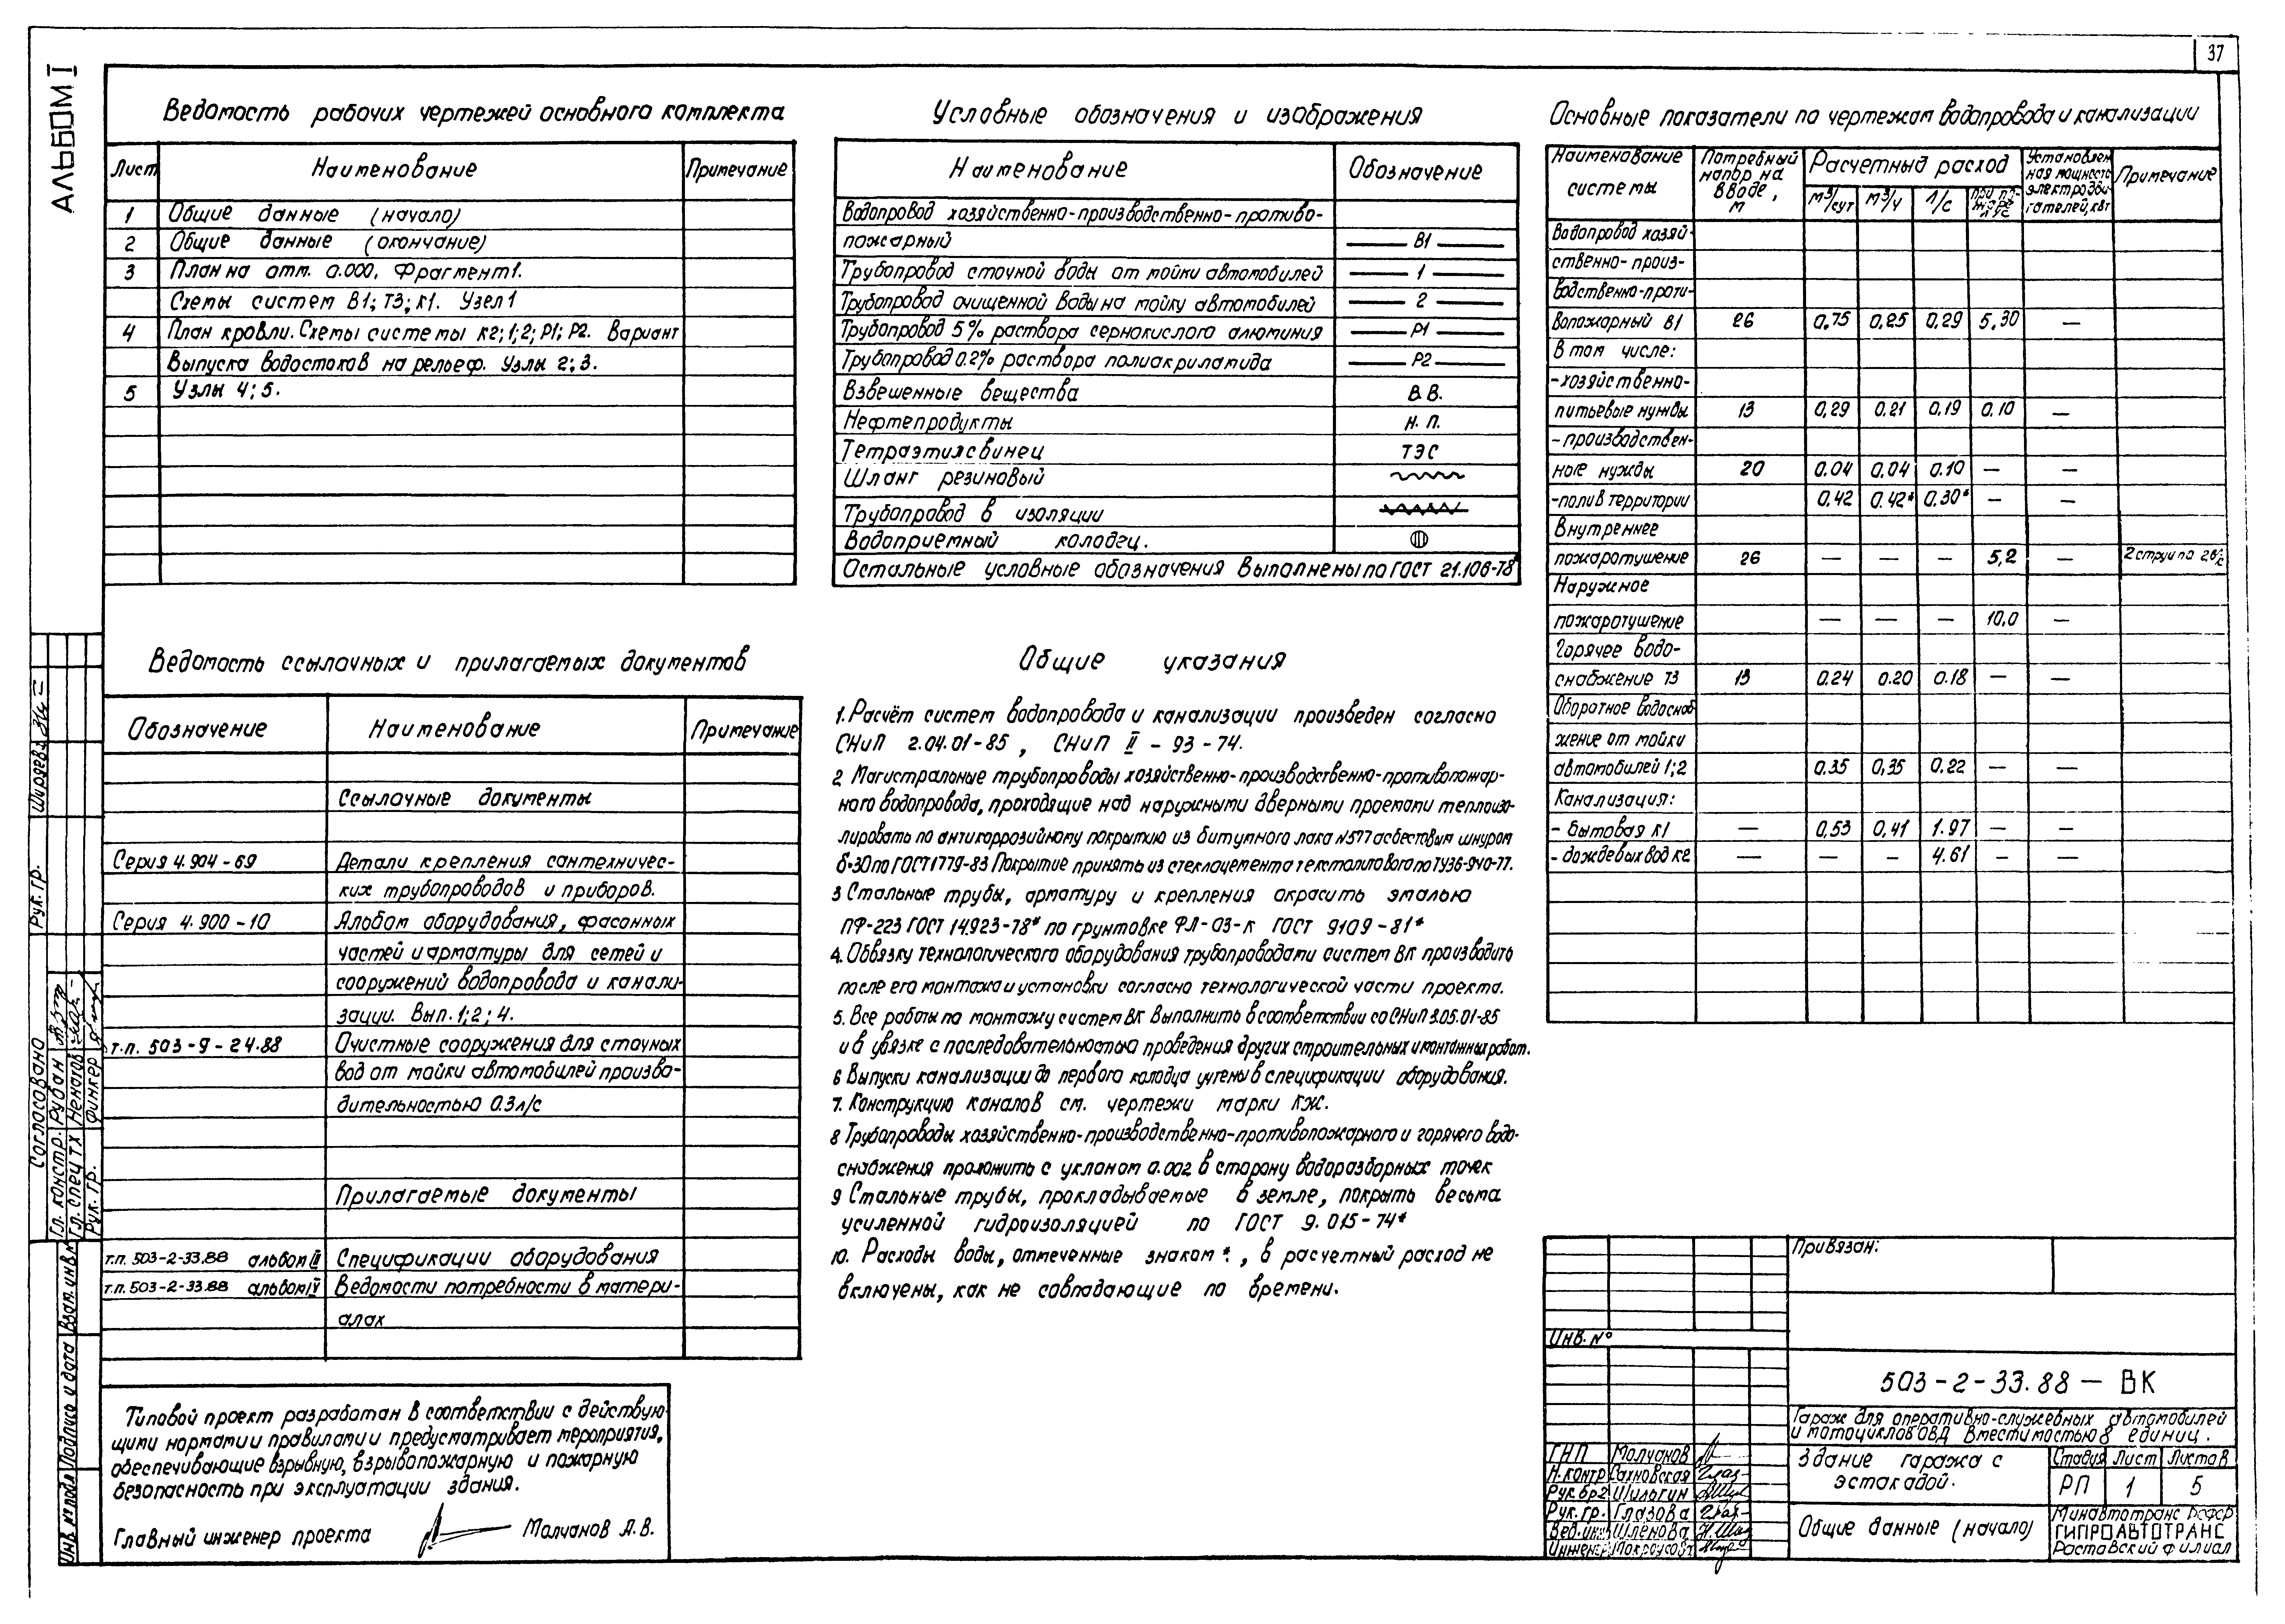 37
АЛЬБОМ I
Ведомость рабочих чертежей основного комплекта
Лист Наименование Примечание
1 Общие данные (начало)
2 Общие данные (окончание)
3 План на отм. 0.000, Фрагмент 1.
Схемы систем В1; Т3; К1. Узел 1
4 План кровли. Схемы системы К2; 1; 2; Р1; Р2. Вариант
Выпуска водостоков на рельеф. Узлы 2; 3.
5 Узлы 4; 5.
Условные обозначения и изображения
Наименование Обозначение
Водопровод хозяйственно-производственно-противо-
пожарный В1
Трубопровод сточной воды от мойки автомобилей 1
Трубопровод очищенной воды на мойку автомобилей 2
Трубопровод 5% раствора сернокислого алюминия Р1
Трубопровод 0.2% раствора полиакриламида Р2
Взвешенные вещества В.В.
Нефтепродукты Н.П.
Тетраэтилсвинец ТЭС
Шланг резиновый
Трубопровод в изоляции
Водоприемный колодец.
Остальные условные обозначения выполнены по ГОСТ 21.106-78
Основные показатели по чертежам водопровода и канализации
Наименование системы Потребный напор на вводе, м Расчетный расход Установлен ная мощность электродви гателей, кВт Примечание
м³/сут м³/ч л/с при по- жаре л/с
Водопровод хозяй-
ственно-произ-
водственно-проти-
вопожарный В1 26 0,75 0,25 0,29 5,30 —
В том числе:
-хозяйственно-
питьевые нужды 13 0,29 0.21 0,19 0,10 —
-производствен-
ные нужды 20 0.04 0.04 0.10 — —
-полив территории 0.42 0.42* 0.30* — —
Внутреннее
пожаротушение 26 — — — 5,2 — 2 струи по 2.6 л/с
Наружное
пожаротушение — — — 10,0 —
Горячее водо-
снабжение Т3 13 0.24 0.20 0.18 — —
Оборотное водоснаб
жение от мойки
автомобилей 1; 2 0.35 0,35 0.22 — —
Канализация:
- бытовая К1 — 0,53 0,41 1.97 — —
- дождевых вод К2 — — — 4.61 — —
Ведомость ссылочных и прилагаемых документов
Обозначение Наименование Примечание
Ссылочные документы
Серия 4.904-69 Детали крепления сантехничес-
ких трубопроводов и приборов.
Серия 4.900-10 Альбом оборудования, фасонных
частей и арматуры для сетей и
сооружений водопровода и канали-
зации. Вып. 1; 2; 4.
т.п. 503-9-24.88 Очистные сооружения для сточных
вод от мойки автомобилей произво-
дительностью 0.3 л/с
Прилагаемые документы
т.п. 503-2-33.88 альбом III Спецификации оборудования
т.п. 503-2-33.88 альбом IV Ведомости потребности в матери-
алах
Общие указания
1. Расчёт систем водопровода и канализации произведен согласно
СНиП 2.04.01-85, СНиП II-93-74.
2 Магистральные трубопроводы хозяйственно-производственно-противопожар-
ного водопровода, проходящие над наружными дверными проемами теплоизо-
лировать по антикоррозийному покрытию из битумного лака №577 асбестовым шнуром
δ-30 по ГОСТ 1779-83 Покрытие принять из стеклоцемента текстолитового по ТУ36-940-77.
3 Стальные трубы, арматуру и крепления окрасить эмалью
ПФ-223 ГОСТ 14.923-78* по грунтовке ФЛ-03-к ГОСТ 9109-81*
4. Обвязку технологического оборудования трубопроводами систем ВК производить
после его монтажа и установки согласно технологической части проекта.
5. Все работы по монтажу систем ВК выполнить в соответствии со СНиП 3.05.01-85
и в увязке с последовательностью проведения других строительных и монтажных работ.
6 Выпуски канализации до первого колодца учтены в спецификации оборудования.
7. Конструкцию каналов см. чертежи марки КЖ.
8 Трубопроводы хозяйственно-производственно-противопожарного и горячего водо-
снабжения проложить с уклоном 0.002 в сторону водоразборных точек
9 Стальные трубы, прокладываемые в земле, покрыть весьма
усиленной гидроизоляцией по ГОСТ 9.015-74*
10. Расходы воды, отмеченные знаком *, в расчетный расход не
включены, как не совпадающие по времени.
Типовой проект разработан в соответствии с действую-
щими нормами и правилами и предусматривает мероприятия,
обеспечивающие взрывную, взрывопожарную и пожарную
безопасность при эксплуатации здания.
Главный инженер проекта Молчанов А.В.
Согласовано
Гл. констр. Рубан
Гл. спец ТХ Ненахов
Рук. гр. Финкер
Рук. гр.
Инв. № подл Подпись и дата Взам. инв. №
Привязан:
Инв. №
503-2-33.88 — ВК
Гараж для оперативно-служебных автомобилей
и мотоциклов ОВД вместимостью 8 единиц.
ГНП Молчанов
Н.контр Сахновская
Рук.бр2 Шильгин
Рук. гр. Глазова
Вед.инж Шленова
Инженер
Здание гаража с
эстакадой.
Стадия Лист Листов
РП 1 5
Общие данные (начало)
Минавтотранс РСФСР
ГИПРОАВТОТРАНС
Ростовский филиал